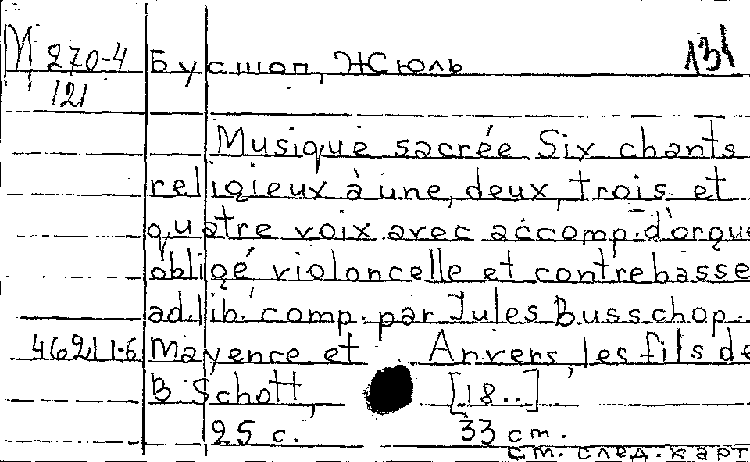 М 270-4 Бусшоп, Жюль 131
121
Musique sacrée Six chants
religieux à une, deux, trois et
quatre voix avec accomp. d'orgue
obligé violoncelle et contrebasse
ad lib. comp. par Jules Busschop.
46211-6 Mayence et Anvers, les fils de
B. Schott, [18..]
25 с. 33 cm.
см. след. карт